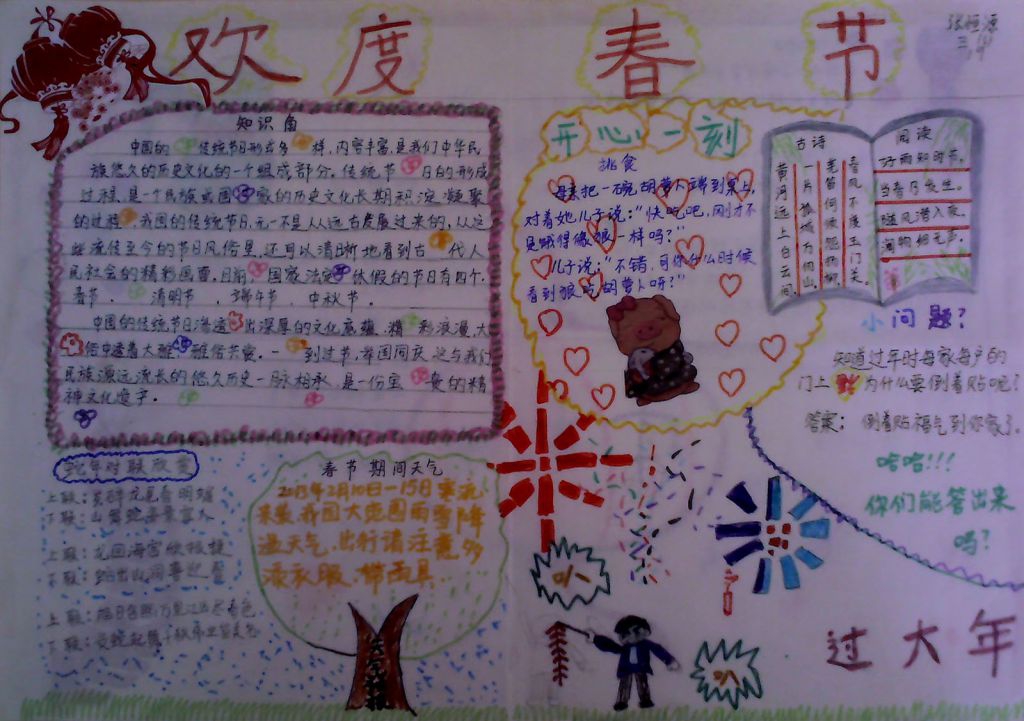 欢度春节
张恒源
知识角
中国的传统节日形式多样,内容丰富,是我们中华民
族悠久的历史文化的一个组成部分。传统节日的形成
过程,是一个民族或国家的历史文化长期积淀凝聚
的过程,我国的传统节日,无一不是从远古发展过来的,从这
些流传至今的节日风俗里,还可以清晰地看到古代人
民社会的精彩画面,目前,国家法定休假的节日有四个.
春节、清明节、端午节、中秋节。
中国的传统节日渗透出深厚的文化底蕴,精彩浪漫,大
俗中透着大雅,雅俗共赏。一到过节,举国同庆,这与我们
民族源远流长的悠久历史一脉相承,是一份宝贵的精
神文化遗产。
开心一刻
挑食
母亲把一碗胡萝卜端到桌上,
对着她儿子说:“快吃吧,刚才不
是饿得像狼一样吗?”
儿子说:“不错,可你什么时候
看到狼吃胡萝卜呀?”
古诗
黄河远上白云间
一片孤城万仞山
羌笛何须怨杨柳
春风不度玉门关
阅读
好雨知时节,
当春乃发生。
随风潜入夜,
润物细无声。
小问题?
知道过年时每家每户的
门上 为什么要倒着贴呢?
答案: 倒着贴福气到你家了.
哈哈!!!
你们能答出来
吗?
蛇年对联欣赏
上联:
下联:
上联:
下联:
上联:
下联:
春节期间天气
2013年2月10日—15日寒流
来袭,我国大范围雨雪降
温天气,出行请注意多
添衣服、带雨具.
过大年